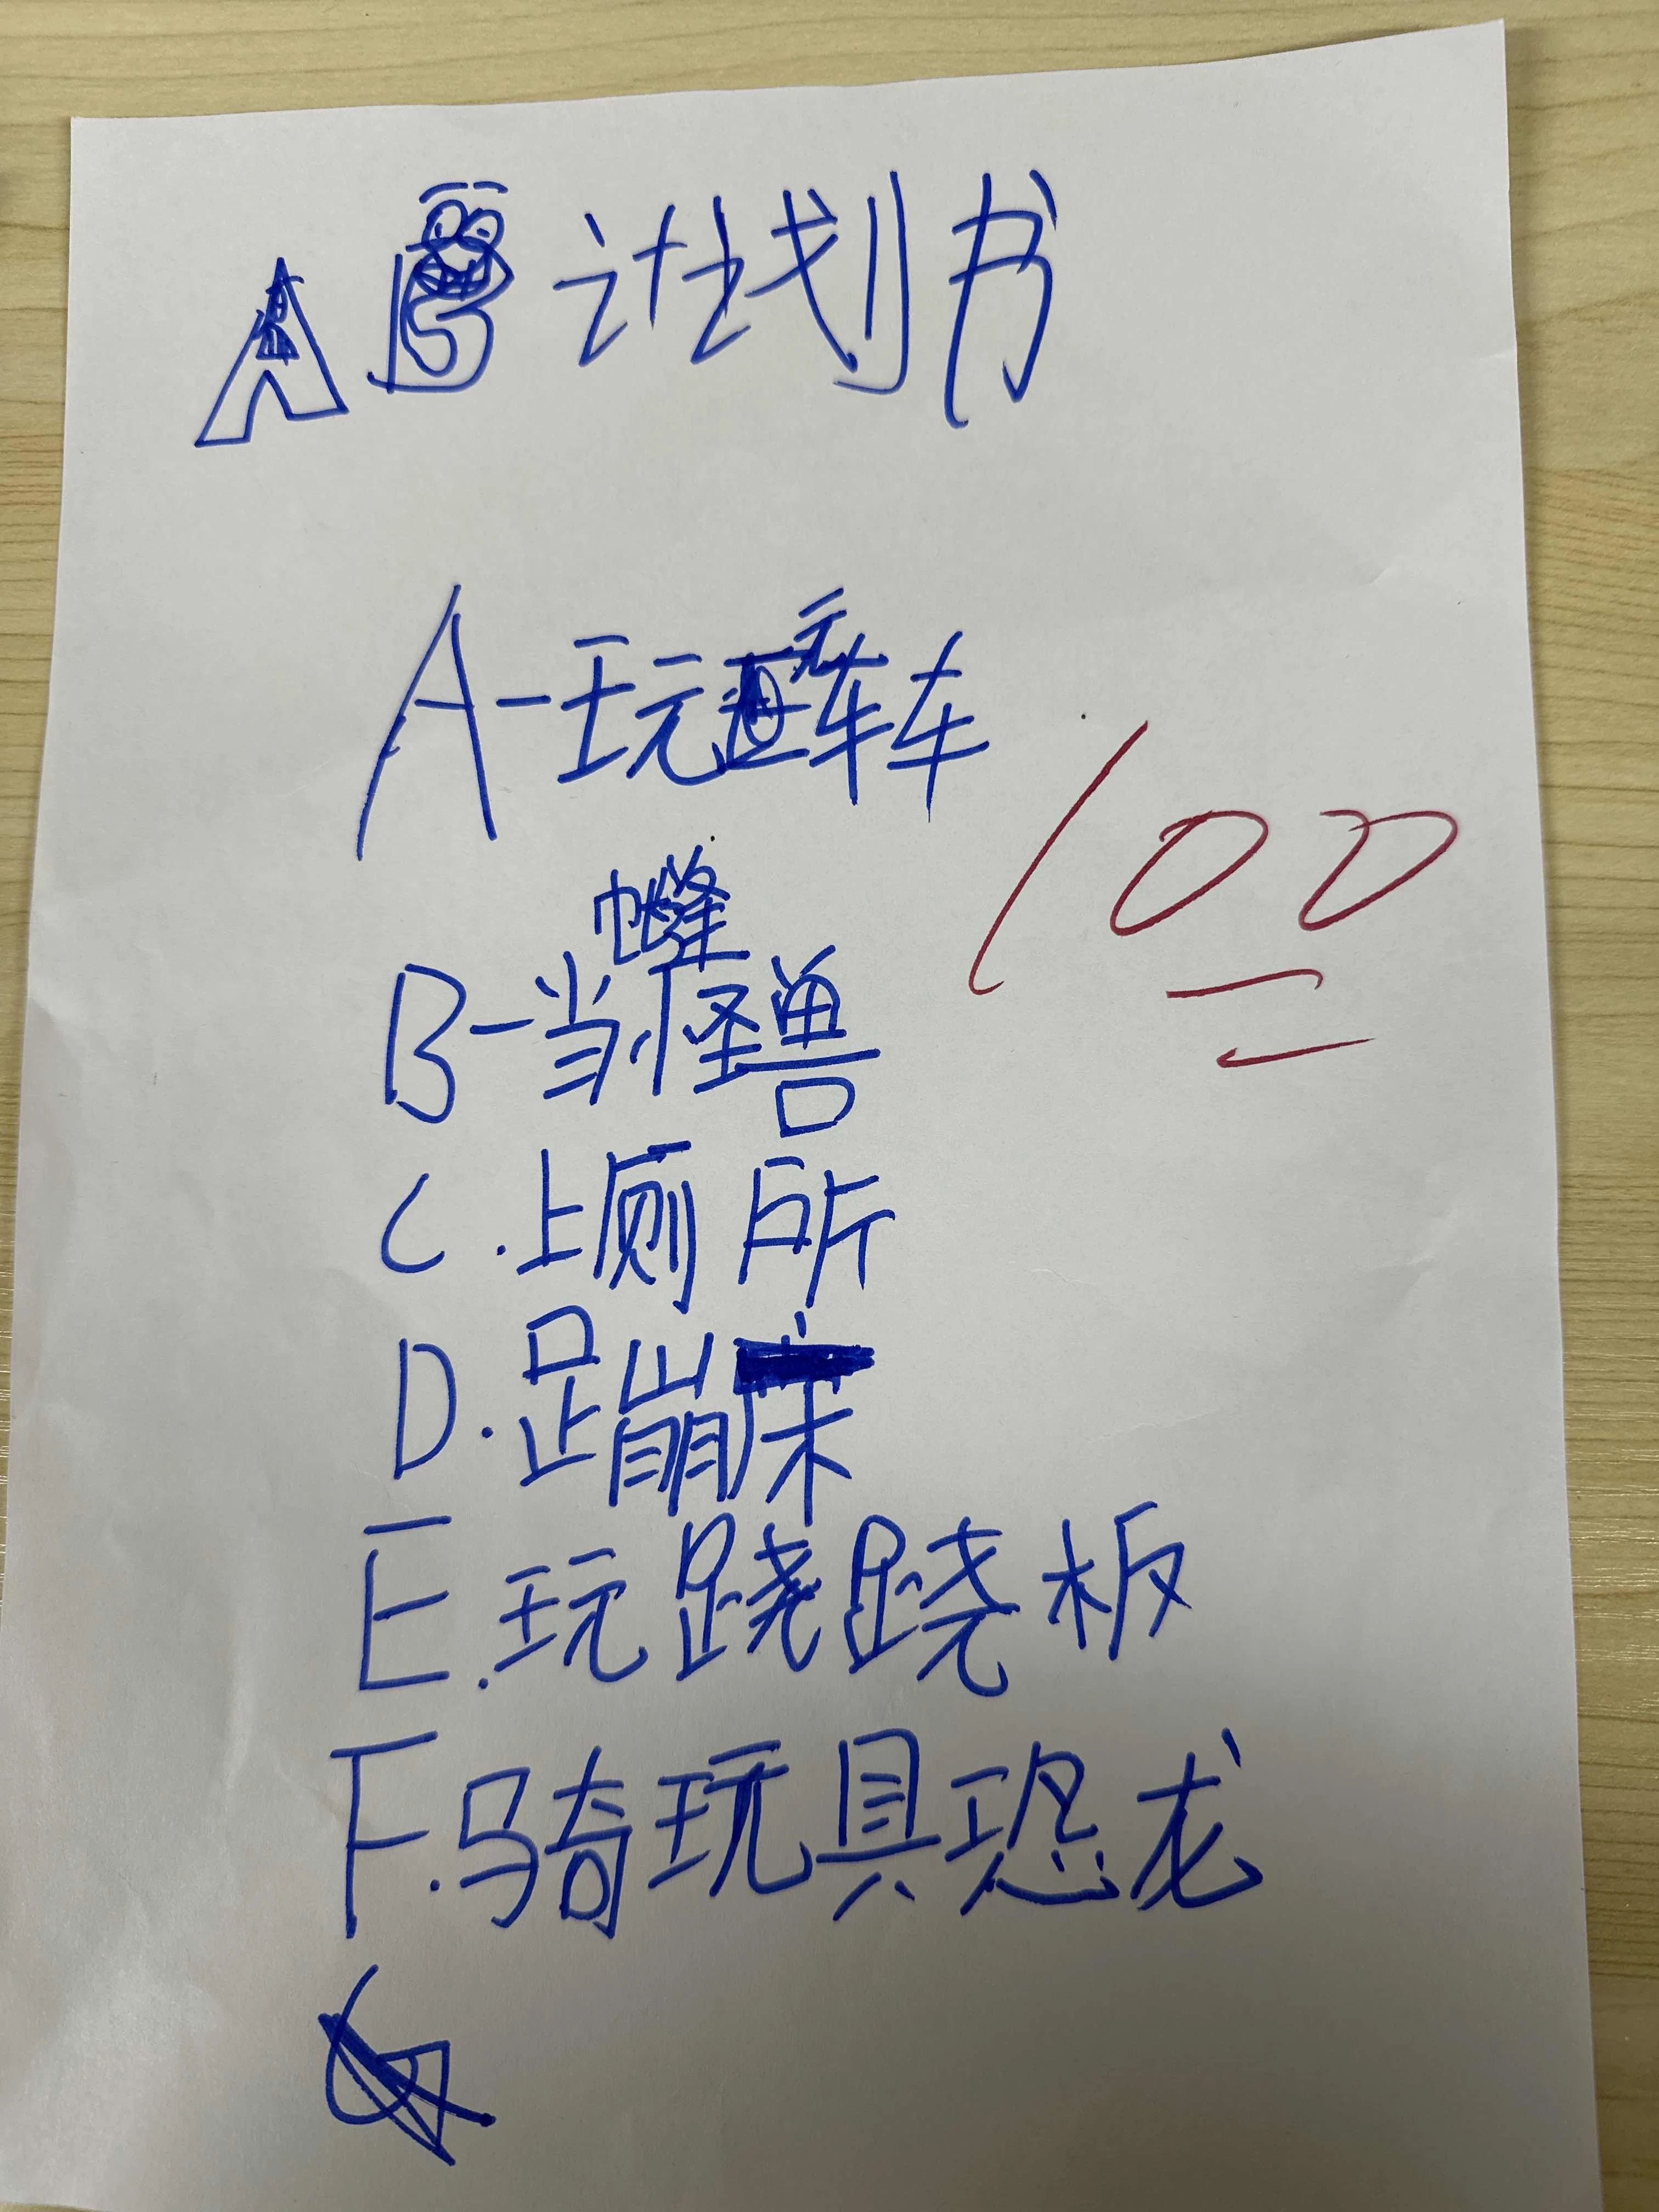 AB计划书
A-玩 车车
100
B-当怪兽
C.上厕所
D.蹦床
E.玩跷跷板
F.骑玩具恐龙